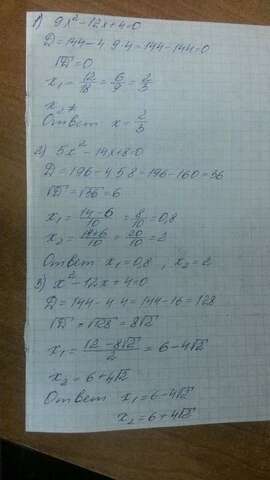 1) 9x² - 12x + 4 = 0
D = 144 - 4·9·4 = 144 - 144 = 0
√D = 0
x₁ = 12/18 = 6/9 = 2/3
x₂
Ответ x = 2/3
2) 5x² - 14x + 8 = 0
D = 196 - 4·5·8 = 196 - 160 = 36
√D = √36 = 6
x₁ = (14 - 6)/10 = 8/10 = 0,8
x₂ = (14 + 6)/10 = 20/10 = 2
Ответ x₁ = 0,8, x₂ = 2
3) x² - 12x + 4 = 0
D = 144 - 4·4 = 144 - 16 = 128
√D = √128 = 8√2
x₁ = (12 - 8√2)/2 = 6 - 4√2
x₂ = 6 + 4√2
Ответ x₁ = 6 - 4√2
x₂ = 6 + 4√2